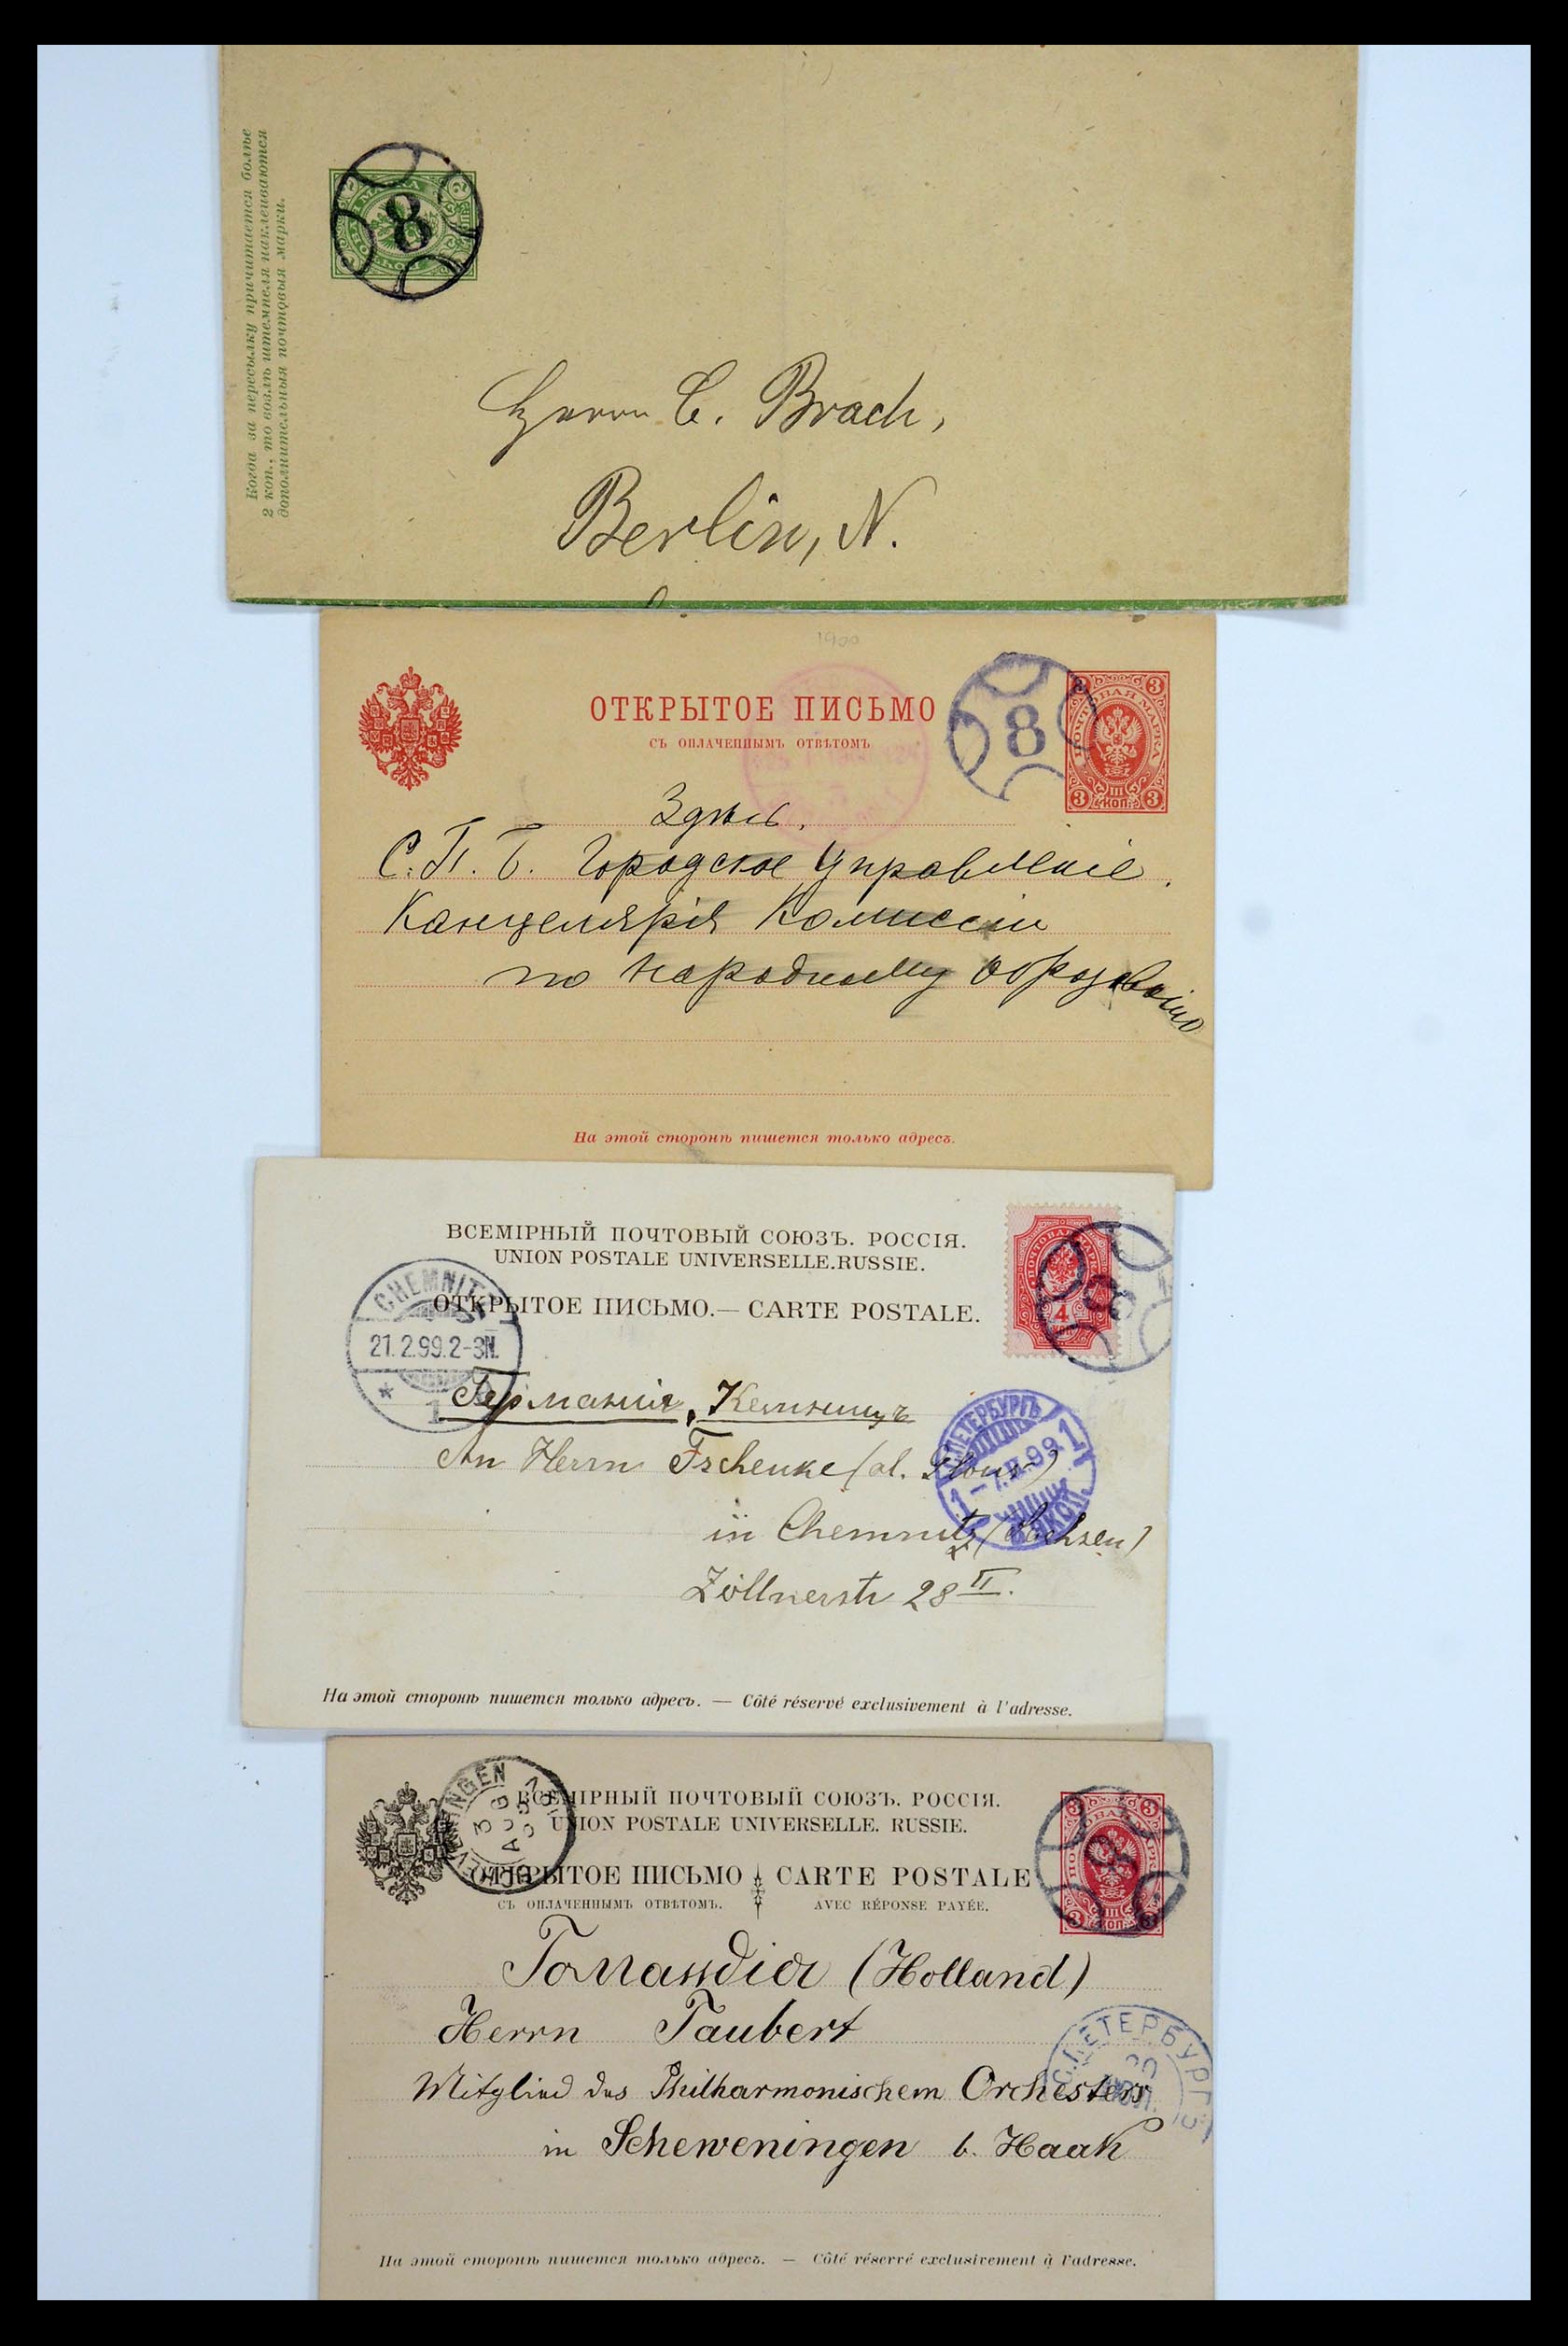 Когда за пересылку причитается болѣе
2 коп., то возлѣ штемпеля наклеиваются
дополнительныя почтовыя марки.
8
Herrn C. Brach,
Berlin, N.
1900
ОТКРЫТОЕ ПИСЬМО
СЪ ОПЛАЧЕННЫМЪ ОТВѢТОМЪ
8
3 3
ПОЧТОВАЯ МАРКА
III
3 КОП. 3
Здѣсь.
С.П.Б. Городское Управленіе.
Канцелярія Комиссіи
по народному образованію
На этой сторонѣ пишется только адресъ.
ВСЕМІРНЫЙ ПОЧТОВЫЙ СОЮЗЪ. РОССІЯ.
UNION POSTALE UNIVERSELLE. RUSSIE.
ОТКРЫТОЕ ПИСЬМО. — CARTE POSTALE.
ПОЧТОВАЯ МАРКА
4
CHEMNITZ
21.2.99.2-3N.
* 1
Германія, Кемницъ
An Herrn Tschenke
in Chemnitz (Sachsen)
Zöllnerstr 28 II.
С.ПЕТЕРБУРГЪ
1 -7.II.99 1
На этой сторонѣ пишется только адресъ. — Côté réservé exclusivement à l'adresse.
ВСЕМІРНЫЙ ПОЧТОВЫЙ СОЮЗЪ. РОССІЯ.
UNION POSTALE UNIVERSELLE. RUSSIE.
ОТКРЫТОЕ ПИСЬМО CARTE POSTALE
СЪ ОПЛАЧЕННЫМЪ ОТВѢТОМЪ. AVEC RÉPONSE PAYÉE.
3 3
ПОЧТОВАЯ МАРКА
III
3 КОП. 3
3 AUG
Голландія (Holland)
Herrn Taubert
Mitglied des Philharmonischem Orchesters
in Scheweningen b. Haak
С.ПЕТЕРБУРГЪ
На этой сторонѣ пишется только адресъ. — Côté réservé exclusivement à l'adresse.